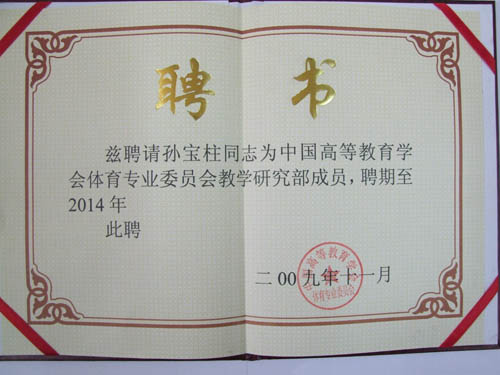 聘 书
兹聘请孙宝柱同志为中国高等教育学
会体育专业委员会教学研究部成员，聘期至
2014年
此聘
二00九年十一月
中国高等教育学会
体育专业委员会